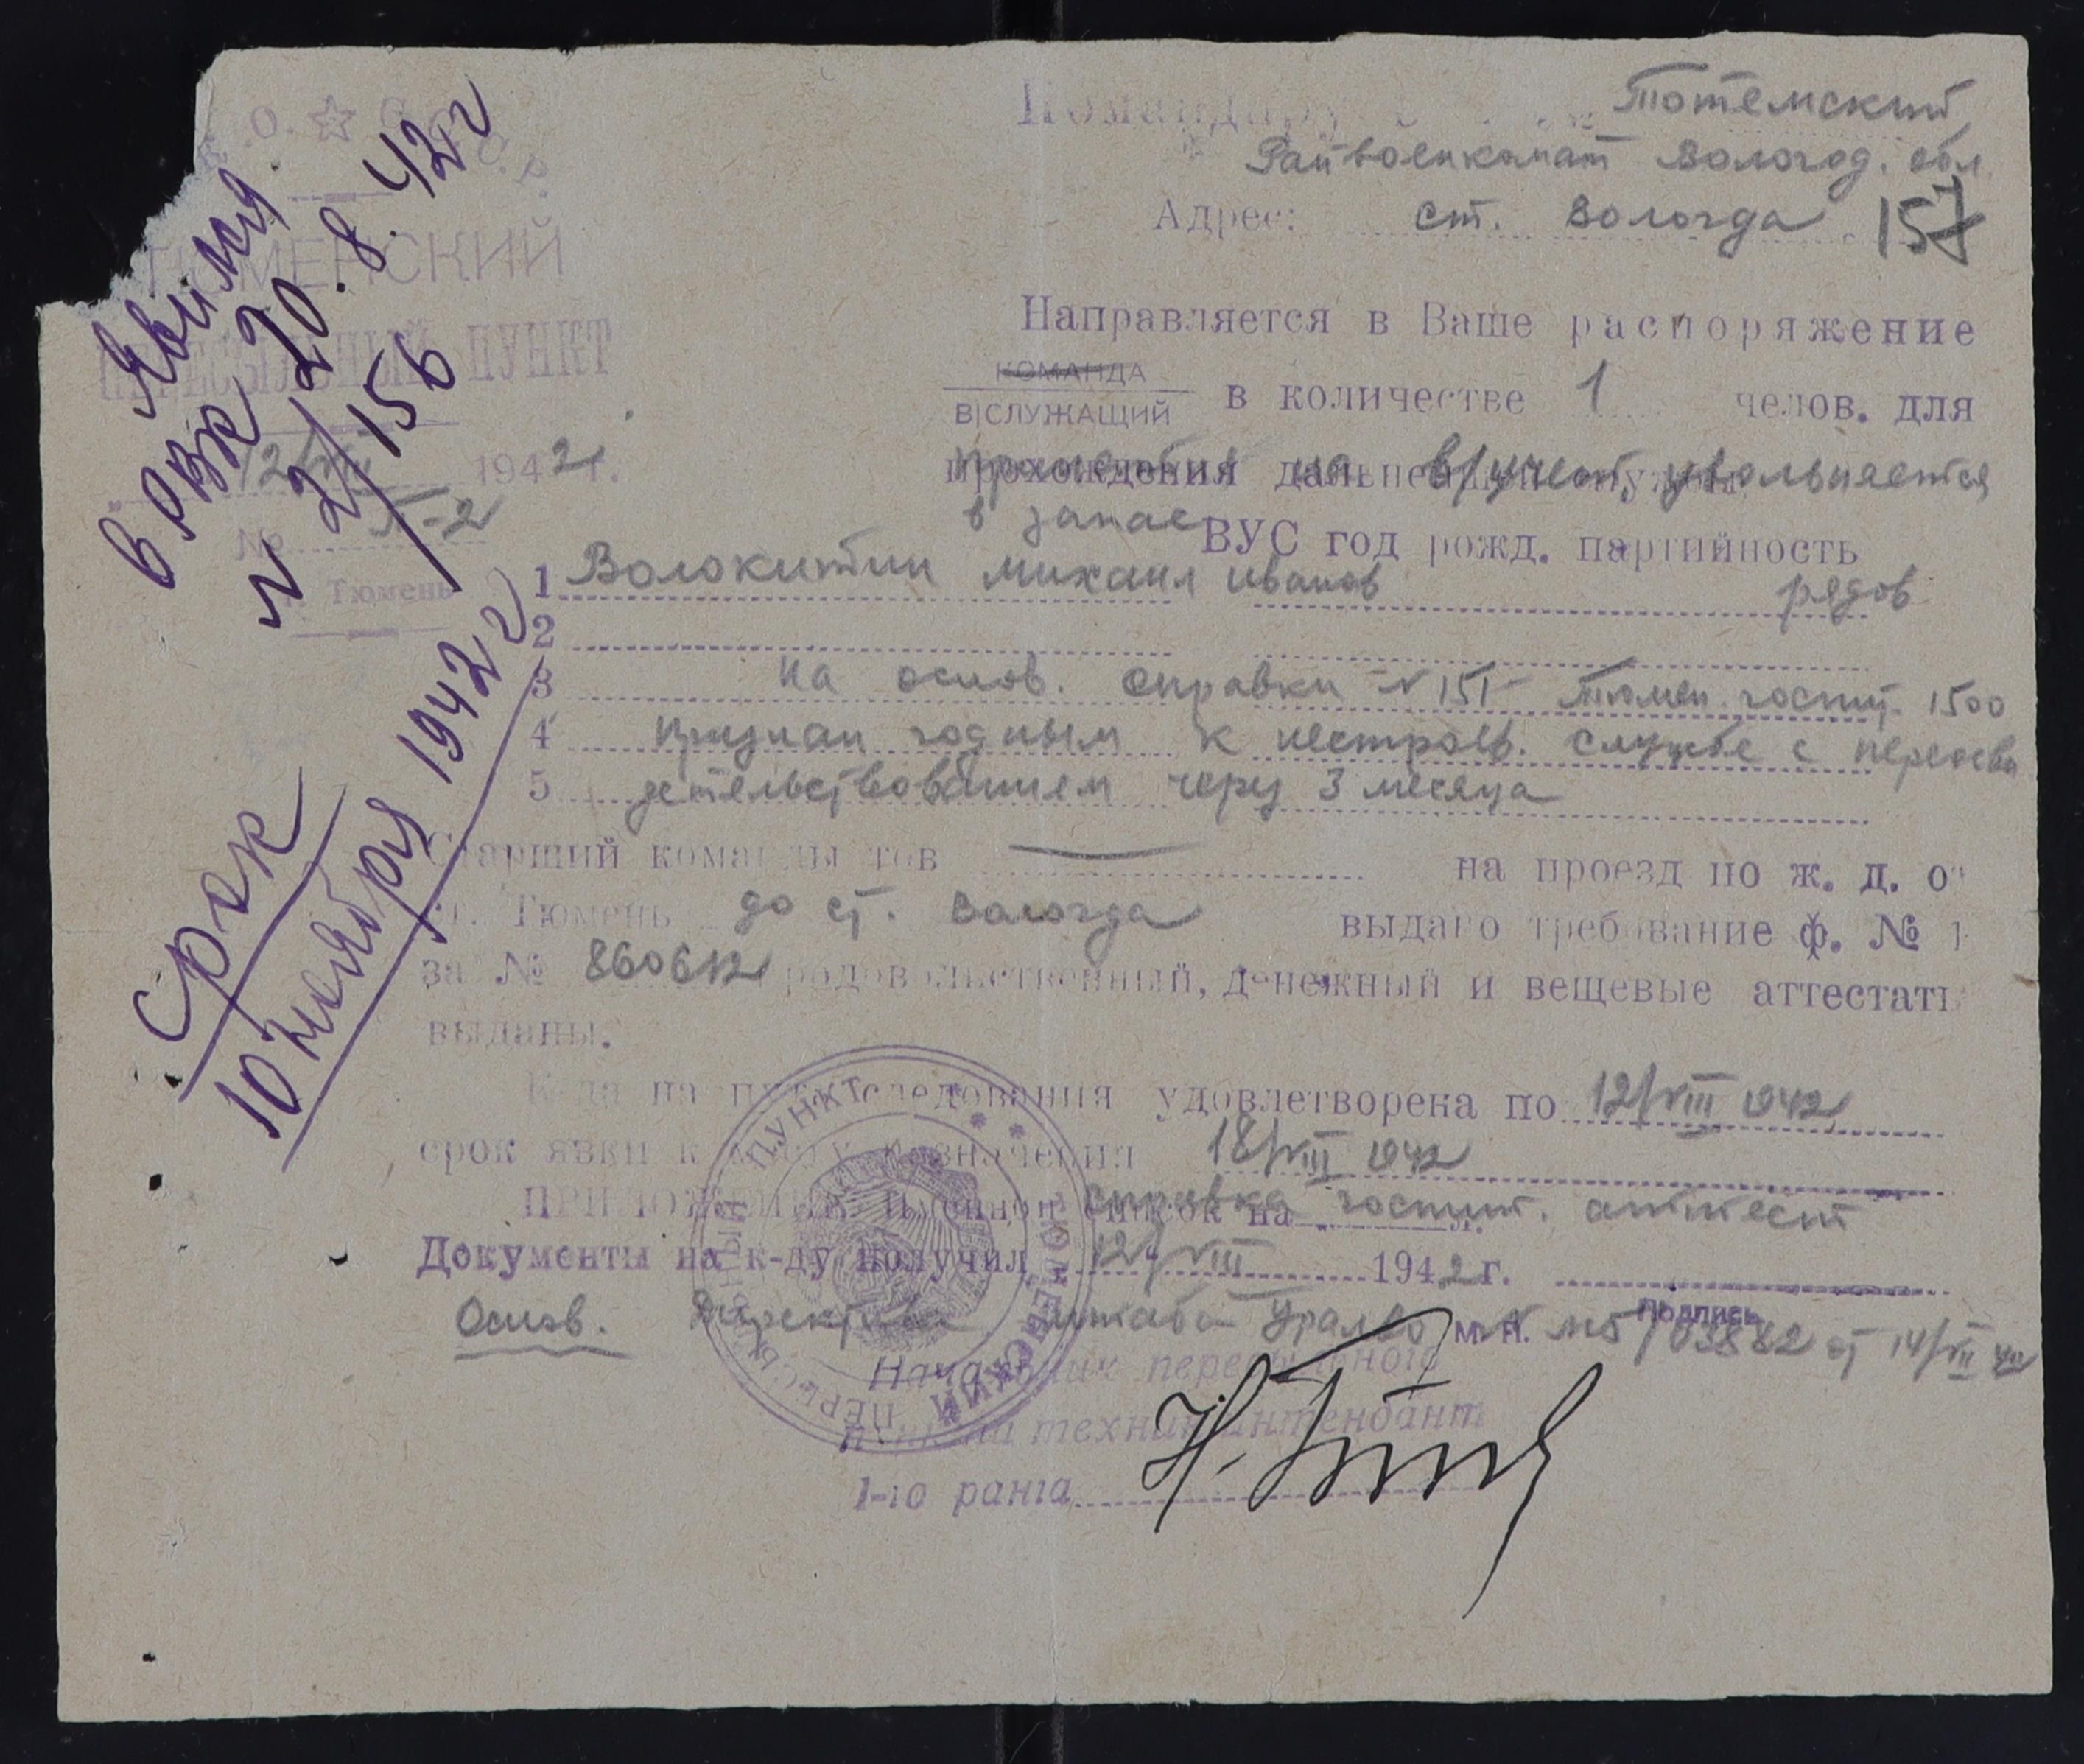 Тотемский
Командиру
Райвоенкомат Вологод. обл.
Адрес: ст. Вологда 157
ТЮМЕНСКИЙ
ПЕРЕСЫЛЬНЫЙ ПУНКТ
12/VIII 1942 г.
№ Л-2
г. Тюмень
Явился
в РВК 20.8.42 г
N 2/156
Срок
10 ноября 1942 г
Направляется в Ваше распоряжение
КОМАНДА
В|СЛУЖАЩИЙ в количестве 1 челов. для
прохождения дальнейшей службы
на в/учет, увольняется
в запас
ВУС год рожд. партийность
1 Волокитин Михаил Иванов рядов
2
3 На основ. справки N 151 Тюмен. госпит. 1500
4 признан годным к нестроев. службе с переосви
5 детельствованием через 3 месяца
Старший команды тов на проезд по ж. д. от
ст. Тюмень до ст. Вологда выдано требование ф. № 1
за № 860612 продовольственный, денежный и вещевые аттестаты
выданы.
К-да на пункт следования удовлетворена по 12/VIII 1942
срок явки к месту назначения 18/VIII 1942
ПРИЛОЖЕНИЕ: Именной список на л.
справка госпит. аттест
Документы на к-ду получил 12/VIII 1942 г.
Подпись
М. П.
Основ. Директива штаба УралВО N М5/03882 от 14/VII 42
Начальник пересыльного
пункта техник интендант
1-го ранга
ТЮМЕНСКИЙ ПЕРЕСЫЛЬНЫЙ ПУНКТ